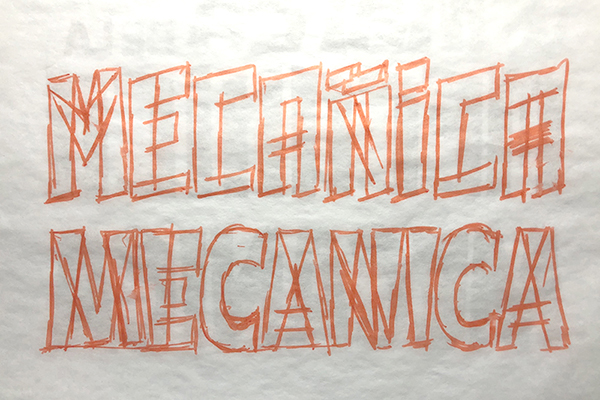 MECAÑiCA
MECANICA